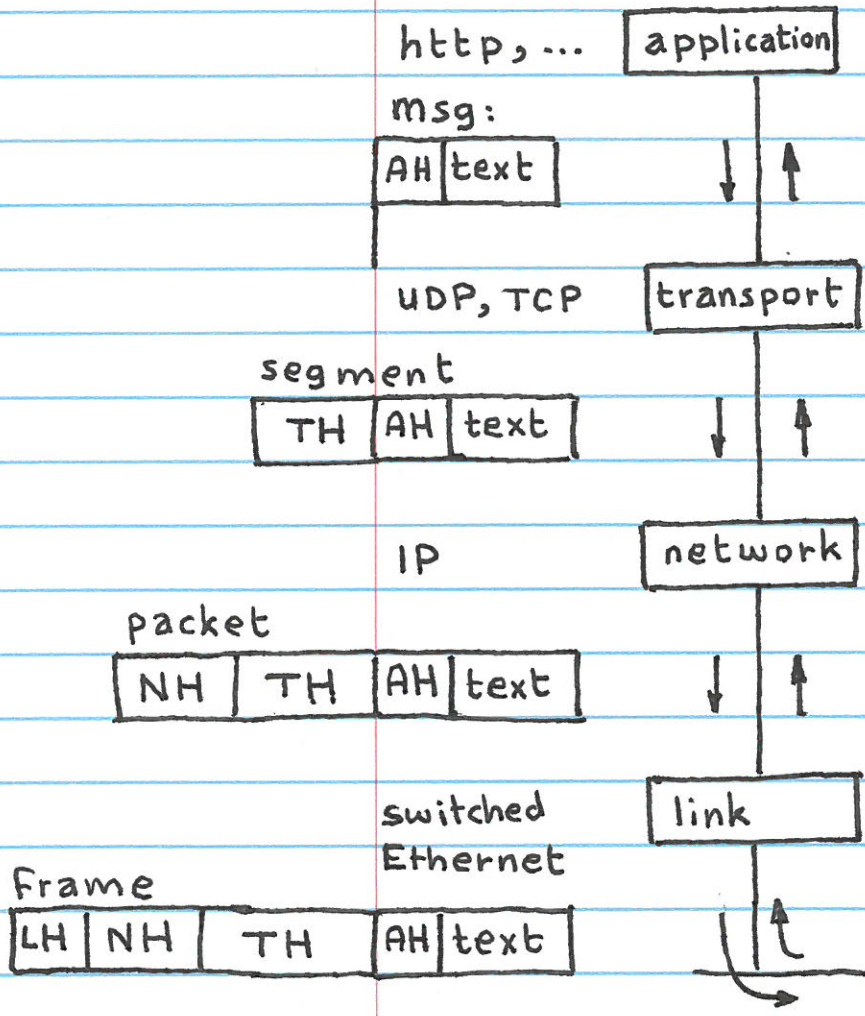 http, ... application
msg:
AH text
UDP, TCP transport
segment
TH AH text
IP network
packet
NH TH AH text
switched link
Ethernet
Frame
LH NH TH AH text